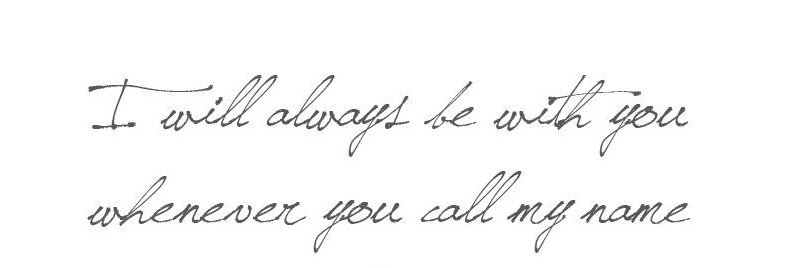 I will always be with you
whenever you call my name